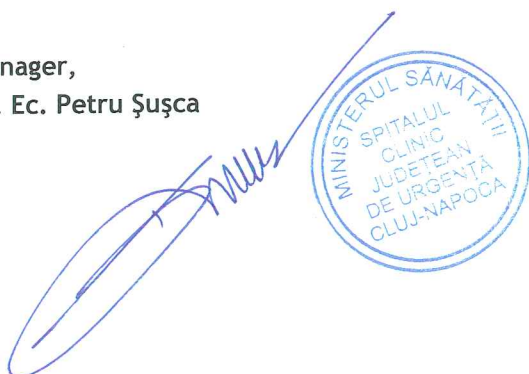 nager,
. Ec. Petru Şuşca
MINISTERUL SĂNĂTĂŢII
SPITALUL
CLINIC
JUDEŢEAN
DE URGENŢĂ
CLUJ-NAPOCA